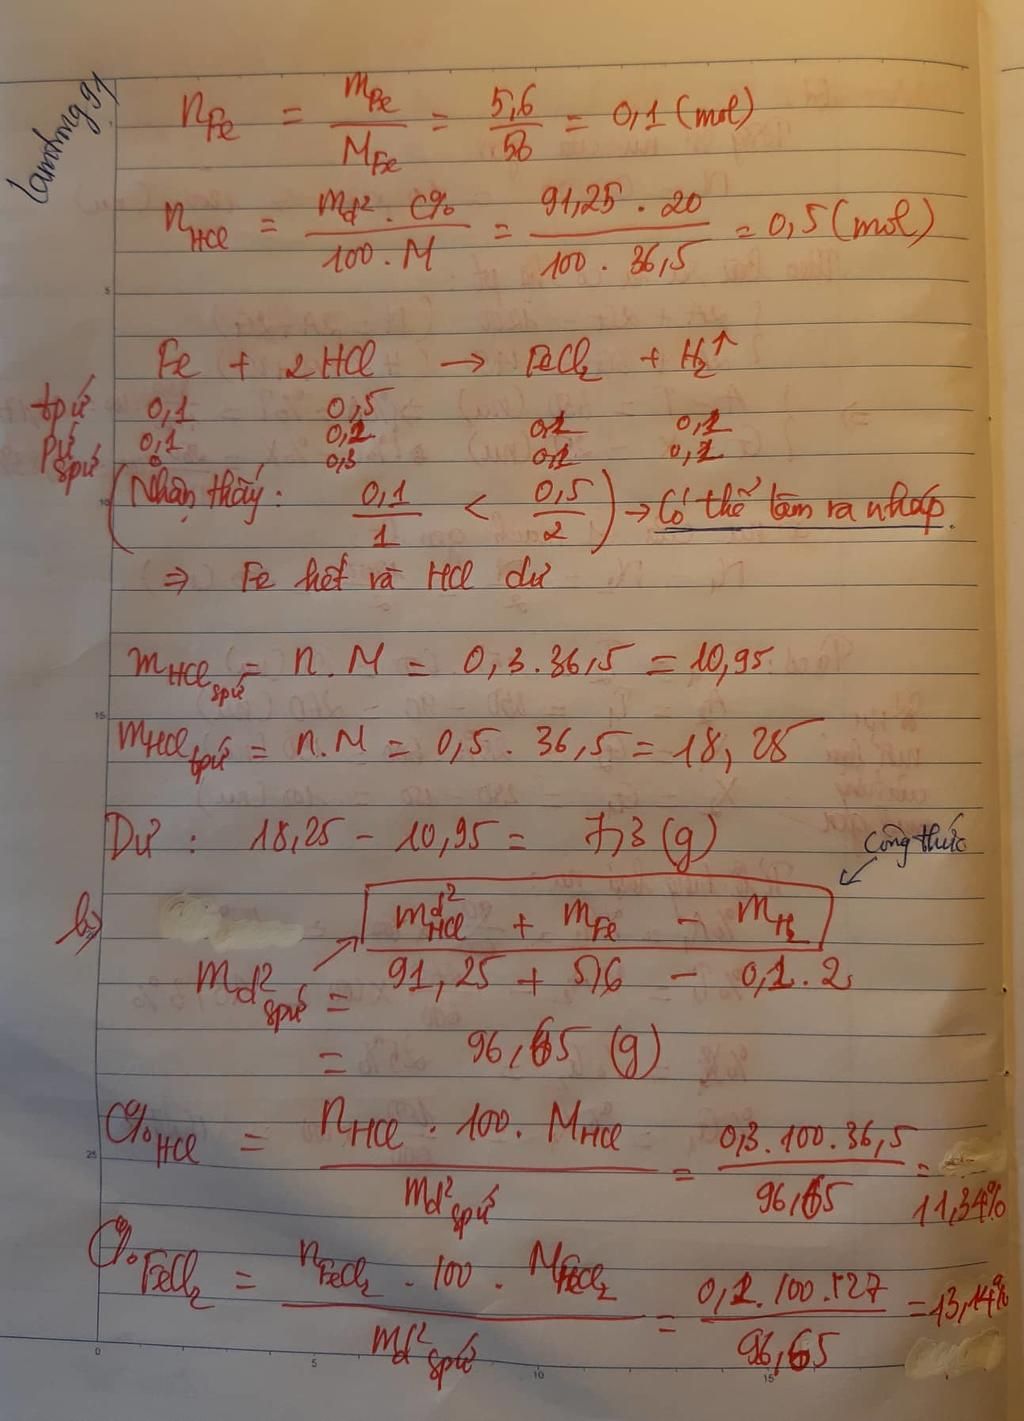 lamtung91
nFe = mFe / MFe = 5,6 / 56 = 0,1 (mol)
nHCl = md² . C% / 100 . M = 91,25 . 20 / 100 . 36,5 = 0,5 (mol)
Fe + 2HCl → FeCl₂ + H₂↑
tpứ 0,1 0,5
pứ 0,1 0,2 0,1 0,1
spứ 0 0,3 0,1 0,1
(Nhận thấy: 0,1 / 1 < 0,5 / 2) → Có thể làm ra nháp.
⇒ Fe hết và HCl dư
mHCl spứ = n.M = 0,3.36,5 = 10,95
mHCl tpứ = n.M = 0,5. 36,5 = 18,25
Dư : 18,25 - 10,95 = 7,3 (g)
Công thức
b) md²HCl + mFe - mH₂
md² spứ = 91,25 + 5,6 - 0,1.2
= 96,65 (g)
C%HCl = nHCl . 100. MHCl / md² spứ = 0,3.100.36,5 / 96,65 = 11,34%
C%FeCl₂ = nFeCl₂ . 100 . MFeCl₂ / md² spứ = 0,1.100.127 / 96,65 = 13,14%
0 5 10 15
5
10
15
25